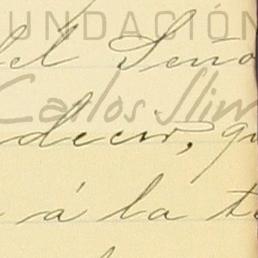 FUNDACIÓN
del Seño
Carlos Slim
decir, qu
á la t